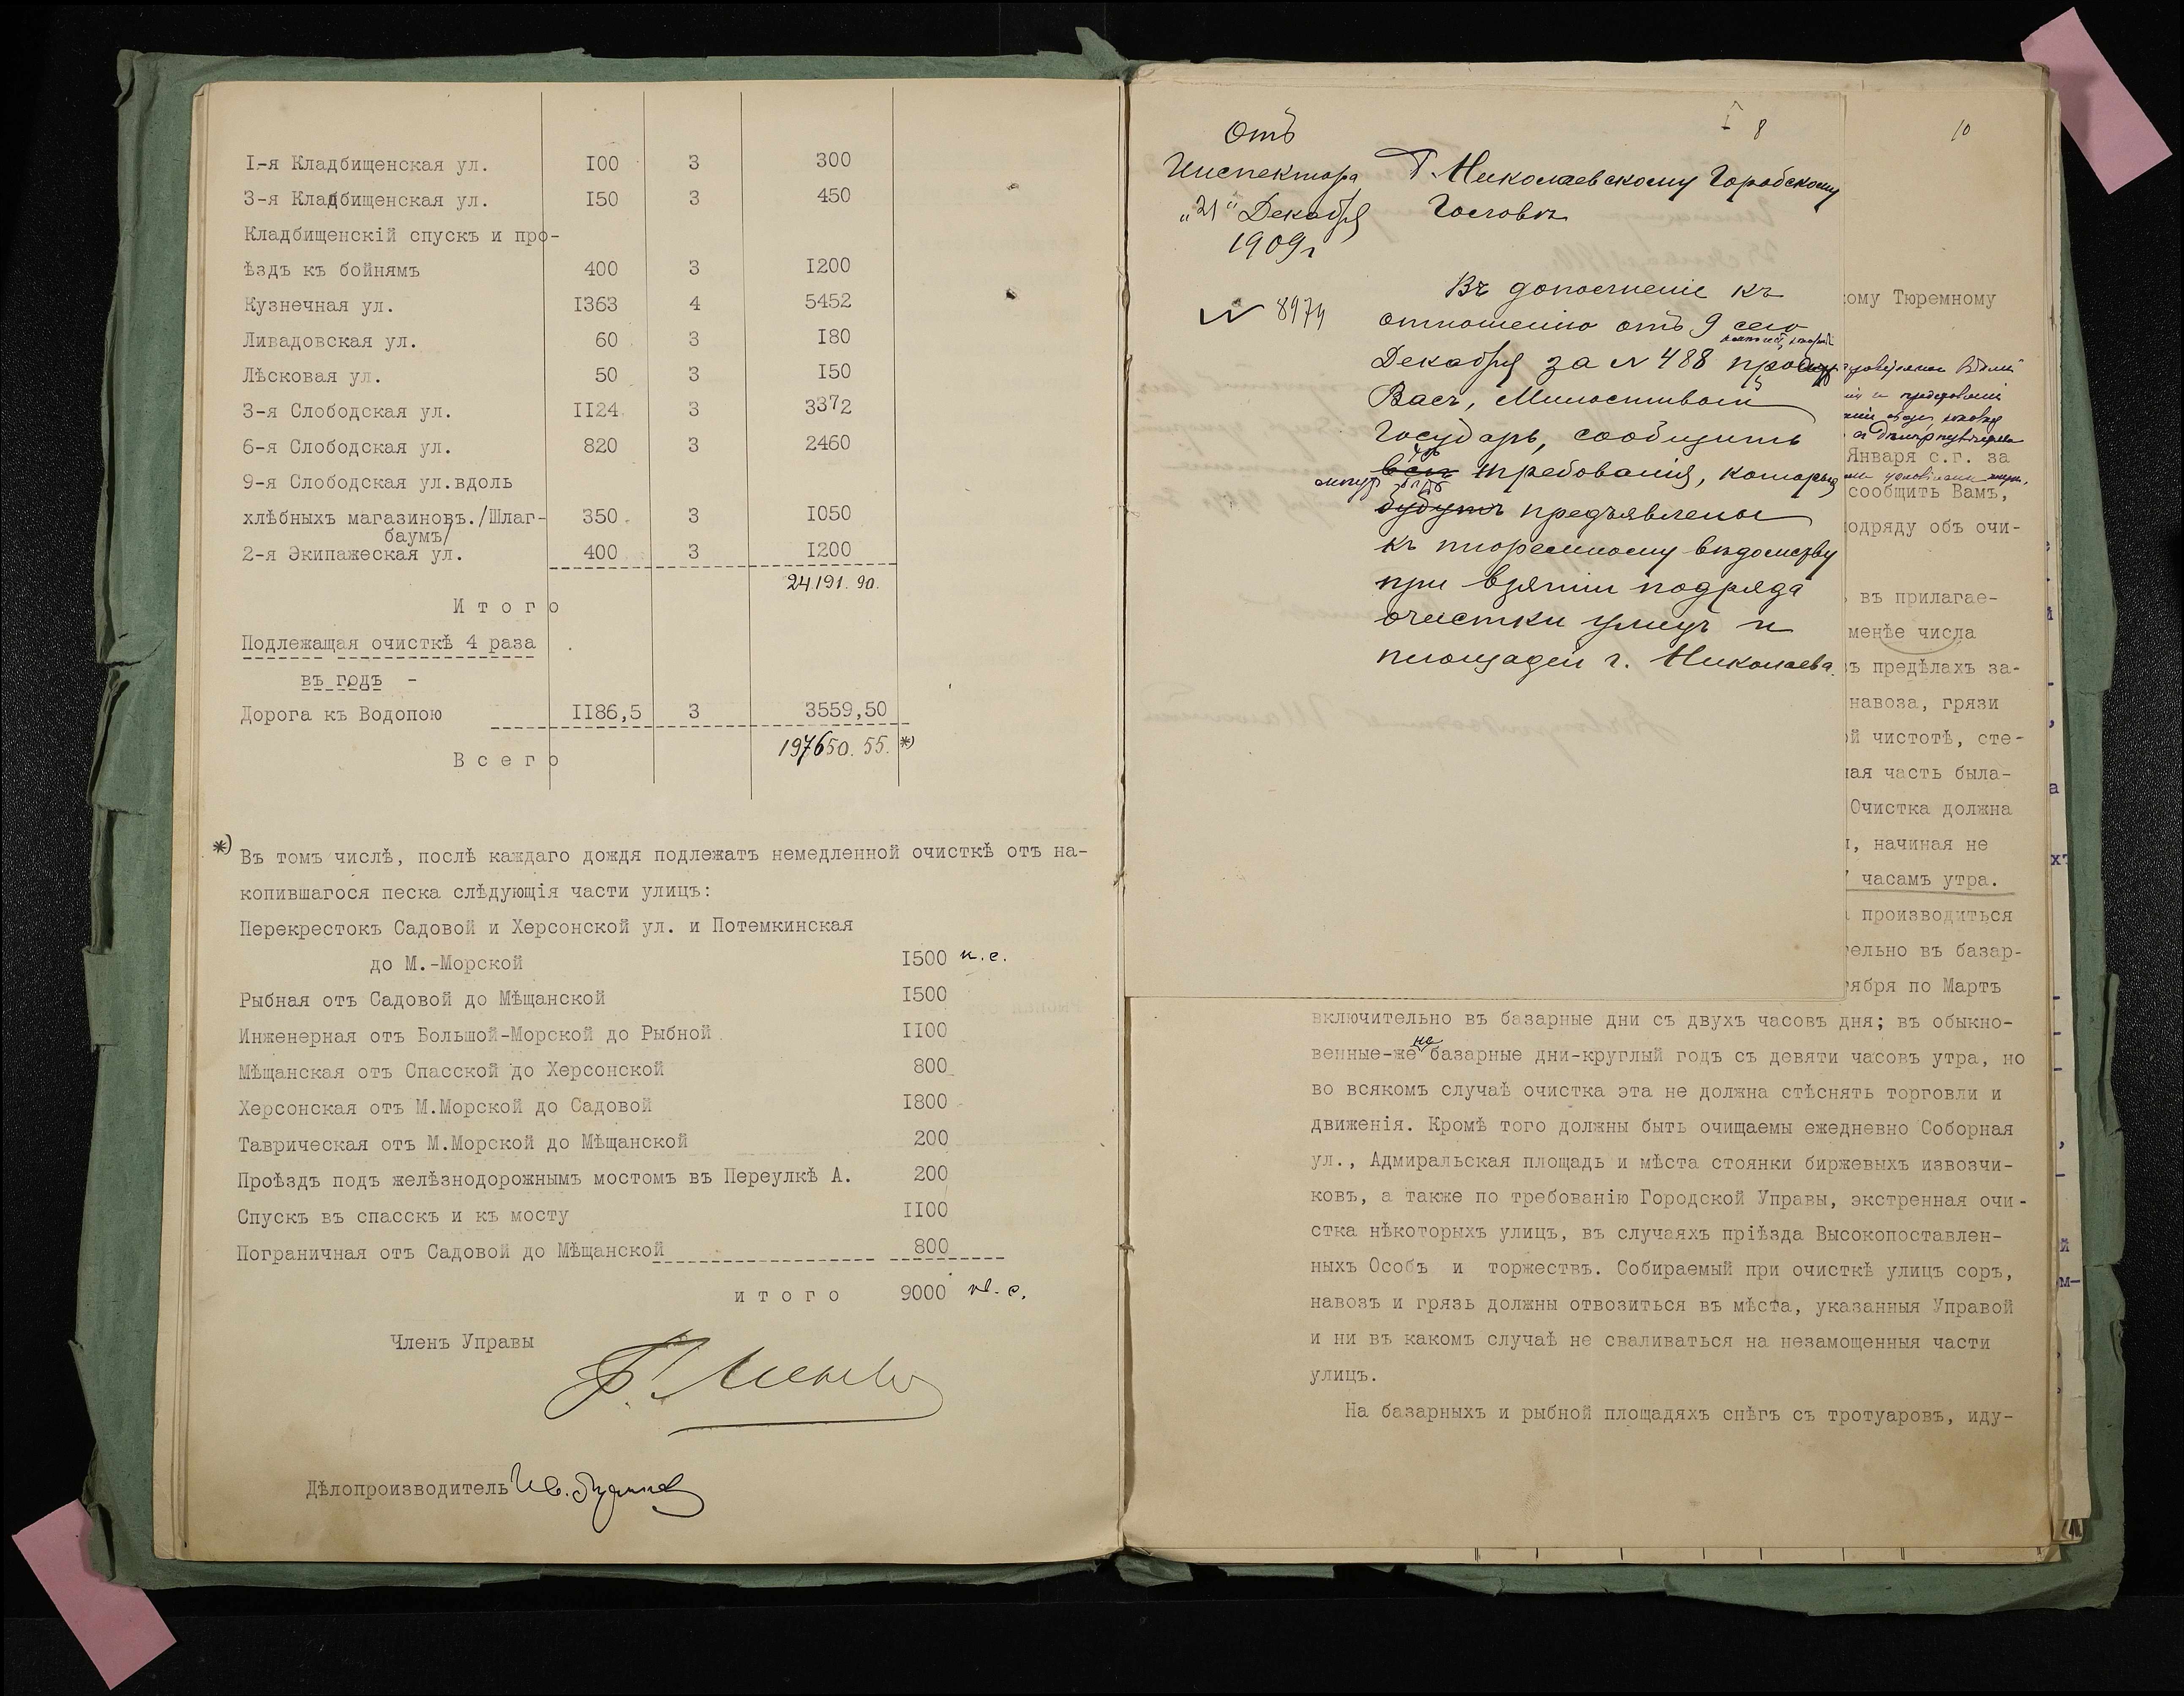 I-я Кладбищенская ул. 100 3 300
3-я Кладбищенская ул. 150 3 450
Кладбищенскій спускъ и про-
ѣздъ къ бойнямъ 400 3 1200
Кузнечная ул. 1363 4 5452
Ливадовская ул. 60 3 180
Лѣсковая ул. 50 3 150
3-я Слободская ул. 1124 3 3372
6-я Слободская ул. 820 3 2460
9-я Слободская ул.вдоль
хлѣбныхъ магазиновъ./Шлаг- 350 3 1050
баумъ/
2-я Экипажеская ул. 400 3 1200
24191.90.
Итого
Подлежащая очисткѣ 4 раза
въ годъ -
Дорога къ Водопою 1186,5 3 3559,50
197650.55. *)
Всего
*) Въ томъ числѣ, послѣ каждаго дождя подлежатъ немедленной очисткѣ отъ на-
копившагося песка слѣдующія части улицъ:
Перекрестокъ Садовой и Херсонской ул. и Потемкинская
до М.-Морской 1500 к.с.
Рыбная отъ Садовой до Мѣщанской 1500
Инженерная отъ Большой-Морской до Рыбной 1100
Мѣщанская отъ Спасской до Херсонской 800
Херсонская отъ М.Морской до Садовой 1800
Таврическая отъ М.Морской до Мѣщанской 200
Проѣздъ подъ желѣзнодорожнымъ мостомъ въ Переулкѣ А. 200
Спускъ въ спасскъ и къ мосту 1100
Пограничная отъ Садовой до Мѣщанской 800
итого 9000 к.с.
Членъ Управы
Дѣлопроизводитель
8
Отъ
Инспектора
"21" Декабря
1909г
№ 8974
Г. Николаевскому Городскому
Головѣ
Въ дополненіе къ
отношенію отъ 9 сего
Декабря за № 488
Васъ, Милостивый
Государь, сообщить
всѣ требованія, которыя
будутъ предъявлены
къ тюремному вѣдомству
при взятіи подряда
очистки улицъ и
площадей г. Николаева.
10
ому Тюремному
Января с.г. за
сообщить Вамъ,
одряду объ очи-
въ прилагае-
менѣе числа
ъ предѣлахъ за-
навоза, грязи
й чистотѣ, сте-
ая часть была-
Очистка должна
, начиная не
часамъ утра.
производиться
ельно въ базар-
ября по Мартъ
включительно въ базарные дни съ двухъ часовъ дня; въ обыкно-
венные-же не базарные дни-круглый годъ съ девяти часовъ утра, но
во всякомъ случаѣ очистка эта не должна стѣснять торговли и
движенія. Кромѣ того должны быть очищаемы ежедневно Соборная
ул., Адмиральская площадь и мѣста стоянки биржевыхъ извозчи-
ковъ, а также по требованію Городской Управы, экстренная очи-
стка нѣкоторыхъ улицъ, въ случаяхъ пріѣзда Высокопоставлен-
ныхъ Особъ и торжествъ. Собираемый при очисткѣ улицъ соръ,
навозъ и грязь должны отвозиться въ мѣста, указанныя Управой
и ни въ какомъ случаѣ не сваливаться на незамощенныя части
улицъ.
На базарныхъ и рыбной площадяхъ снѣгъ съ тротуаровъ, иду-